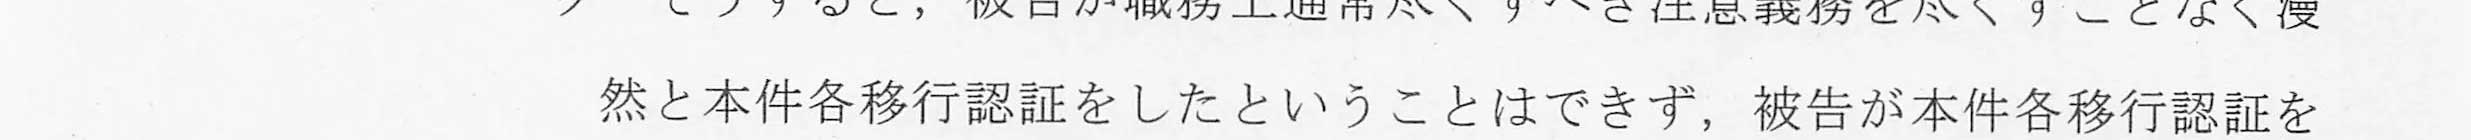 そうすると，被告が職務上通常尽くすべき注意義務を尽くすことなく漫
然と本件各移行認証をしたということはできず，被告が本件各移行認証を